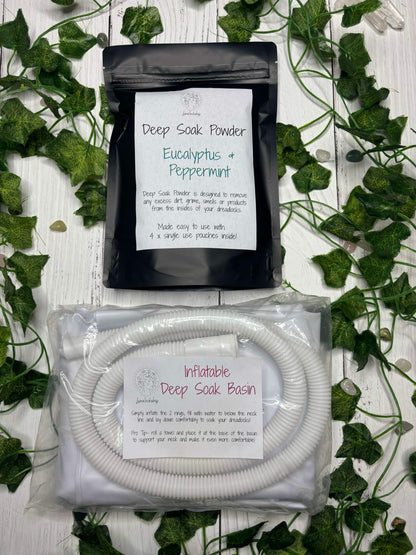 Deep Soak Powder
Eucalyptus &
Peppermint
Deep Soak Powder is designed to remove
any excess dirt, grime, smells or products
from the insides of your dreadlocks.
Made easy to use with
4 x single use pouches inside!
Inflatable
Deep Soak Basin
Simply inflate the 2 rings, fill with water to below the neck
line and lay down comfortably to soak your dreadlocks!
Pro Tip- roll a towel and place it at the base of the basin
to support your neck and make it even more comfortable!